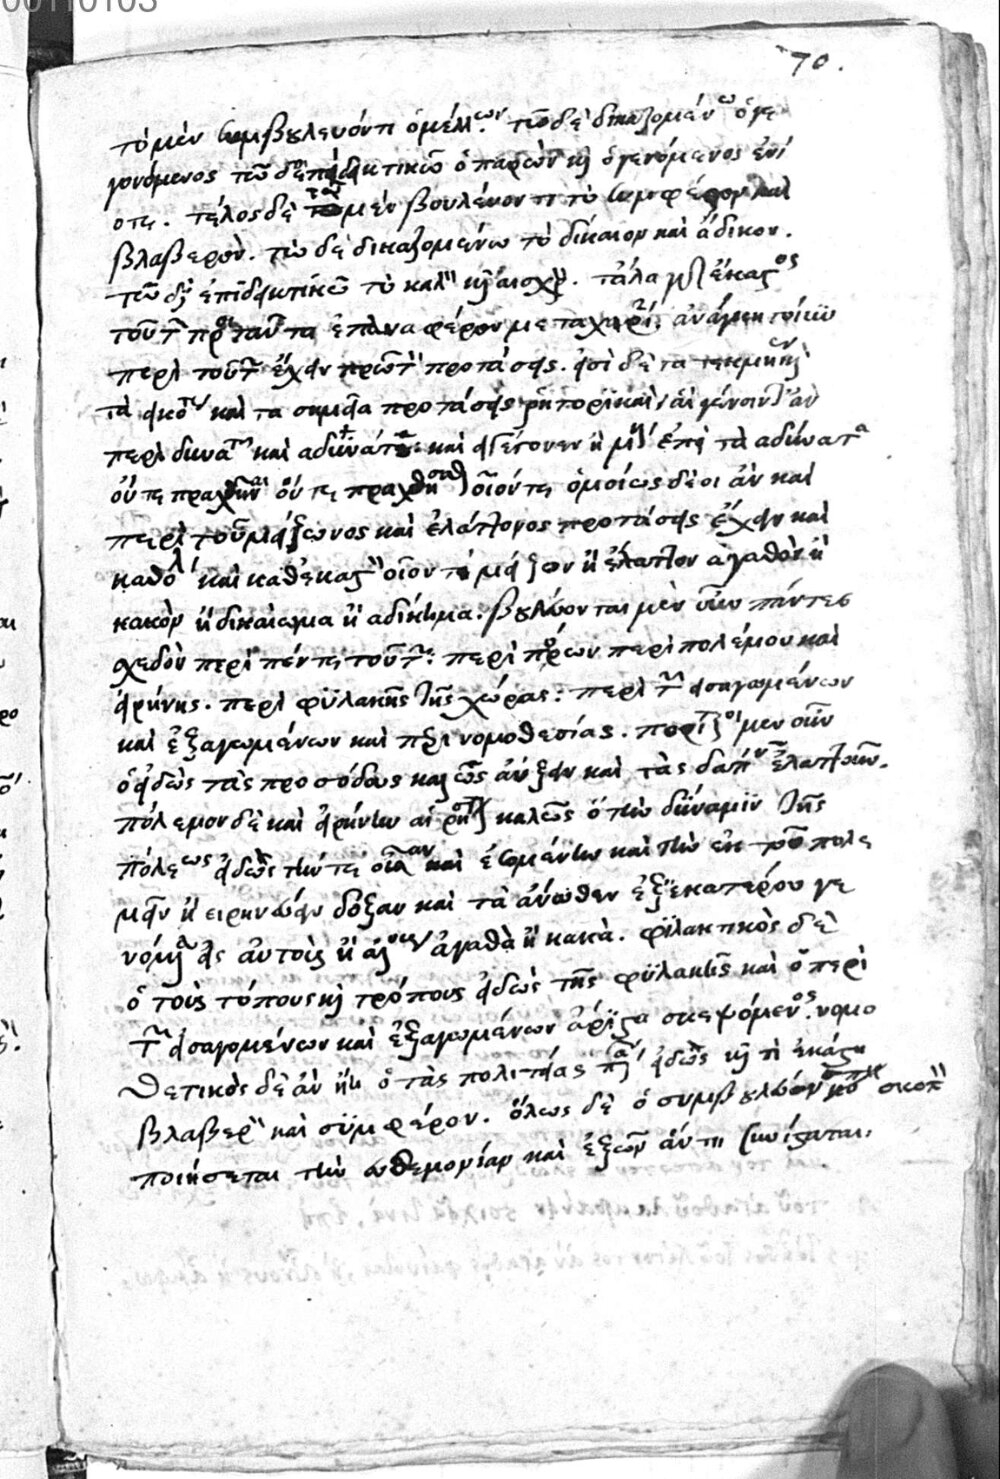 70.
τὸ μὲν συμβουλεύοντι ὁ μέλλων. τῶ δὲ δικαζομένω ὁ γε
γονόμενος τῶ δὲ ἐπιδεικτικῶ ὁ παρὼν καὶ ὁ γενόμενος ἐνί
οτε. τέλος δὲ τῶ μὲν βουλεύοντι τὸ συμφέρον καὶ
βλαβερὸν. τῶ δὲ δικαζομένω τὸ δίκαιον καὶ ἄδικον.
τῶ δὲ ἐπιδεικτικῶ τὸ καλὸν καὶ αἰσχρὸν. τἆλα δὲ ἕκαστος
τούτων πρὸς ταῦτα ἐπαναφέρον μεταχειρίζεται, ἀνάγκη τοίνυν
περὶ τούτων ἔχειν πρῶτον προτάσεις. εἰσὶ δὲ τὰ τεκμήρια καὶ
τὰ εἰκότα καὶ τὰ σημεῖα προτάσεις ῥητορικαὶ, αἱ γένοιντ' ἂν
περὶ δυνατῶν καὶ ἀδυνάτων καὶ εἰ γέγονεν ἢ μὴ, ἐπεὶ τὰ ἀδύνατα
οὔτε πραχθῆναι οὔτε πραχθήσεσθαι οἷόν τε, ὁμοίως δὲ οἱ ἂν καὶ
περὶ τοῦ μείζονος καὶ ἐλάττονος προτάσεις ἔχειν καὶ
καθόλου καὶ καθέκαστον οἷον τί μεῖζον ἢ ἔλαττον ἀγαθὸν ἢ
κακὸν ἢ δικαίωμα ἢ ἀδίκημα. βουλεύονται μὲν οὖν πάντες
σχεδὸν περὶ πέντε τούτων: περὶ πόρων περὶ πολέμου καὶ
εἰρήνης. περὶ φυλακῆς τῆς χώρας: περὶ τῶν εἰσαγωμένων
καὶ ἐξαγωμένων καὶ περὶ νομοθεσίας. πορίζοι μεν οὖν
ὁ εἰδὼς τὰς προσόδους καὶ ὡς αὔξειν καὶ τὰς δαπάνας ἐλαττοῦν.
πόλεμον δὲ καὶ εἰρήνην αἱρήσεται καλῶς ὁ τὴν δύναμιν τῆς
πόλεως εἰδὼς τήν τε οὖσαν καὶ ἐσομένην καὶ τὴν ἐκ τοῦ πολε
μεῖν ἢ εἰρηνεύειν δόξαν καὶ τὰ ἄνωθεν ἐξ ἑκατέρου γε
νόμενα εἰς αὐτοὺς ἢ ἄλλους ἀγαθὰ ἢ κακὰ. φυλακτικὸς δὲ
ὁ τοὺς τόπους καὶ τρόπους εἰδὼς τῆς φυλακῆς καὶ ὁ περὶ
τῶν εἰσαγομένων καὶ ἐξαγωμένων ἄριστα σκεψόμενος. νομο
θετικὸς δὲ ἂν ἦν ὁ τὰς πολιτείας πάσας εἰδὼς καὶ τί ἑκάστη
βλαβερὸν καὶ σύμφερον. ὅλως δὲ ὁ συμβουλεύων σκοπὸν
ποιήσεται τὴν εὐδεμονίαν καὶ ἐξ ὧν αὕτη συνίσταται.